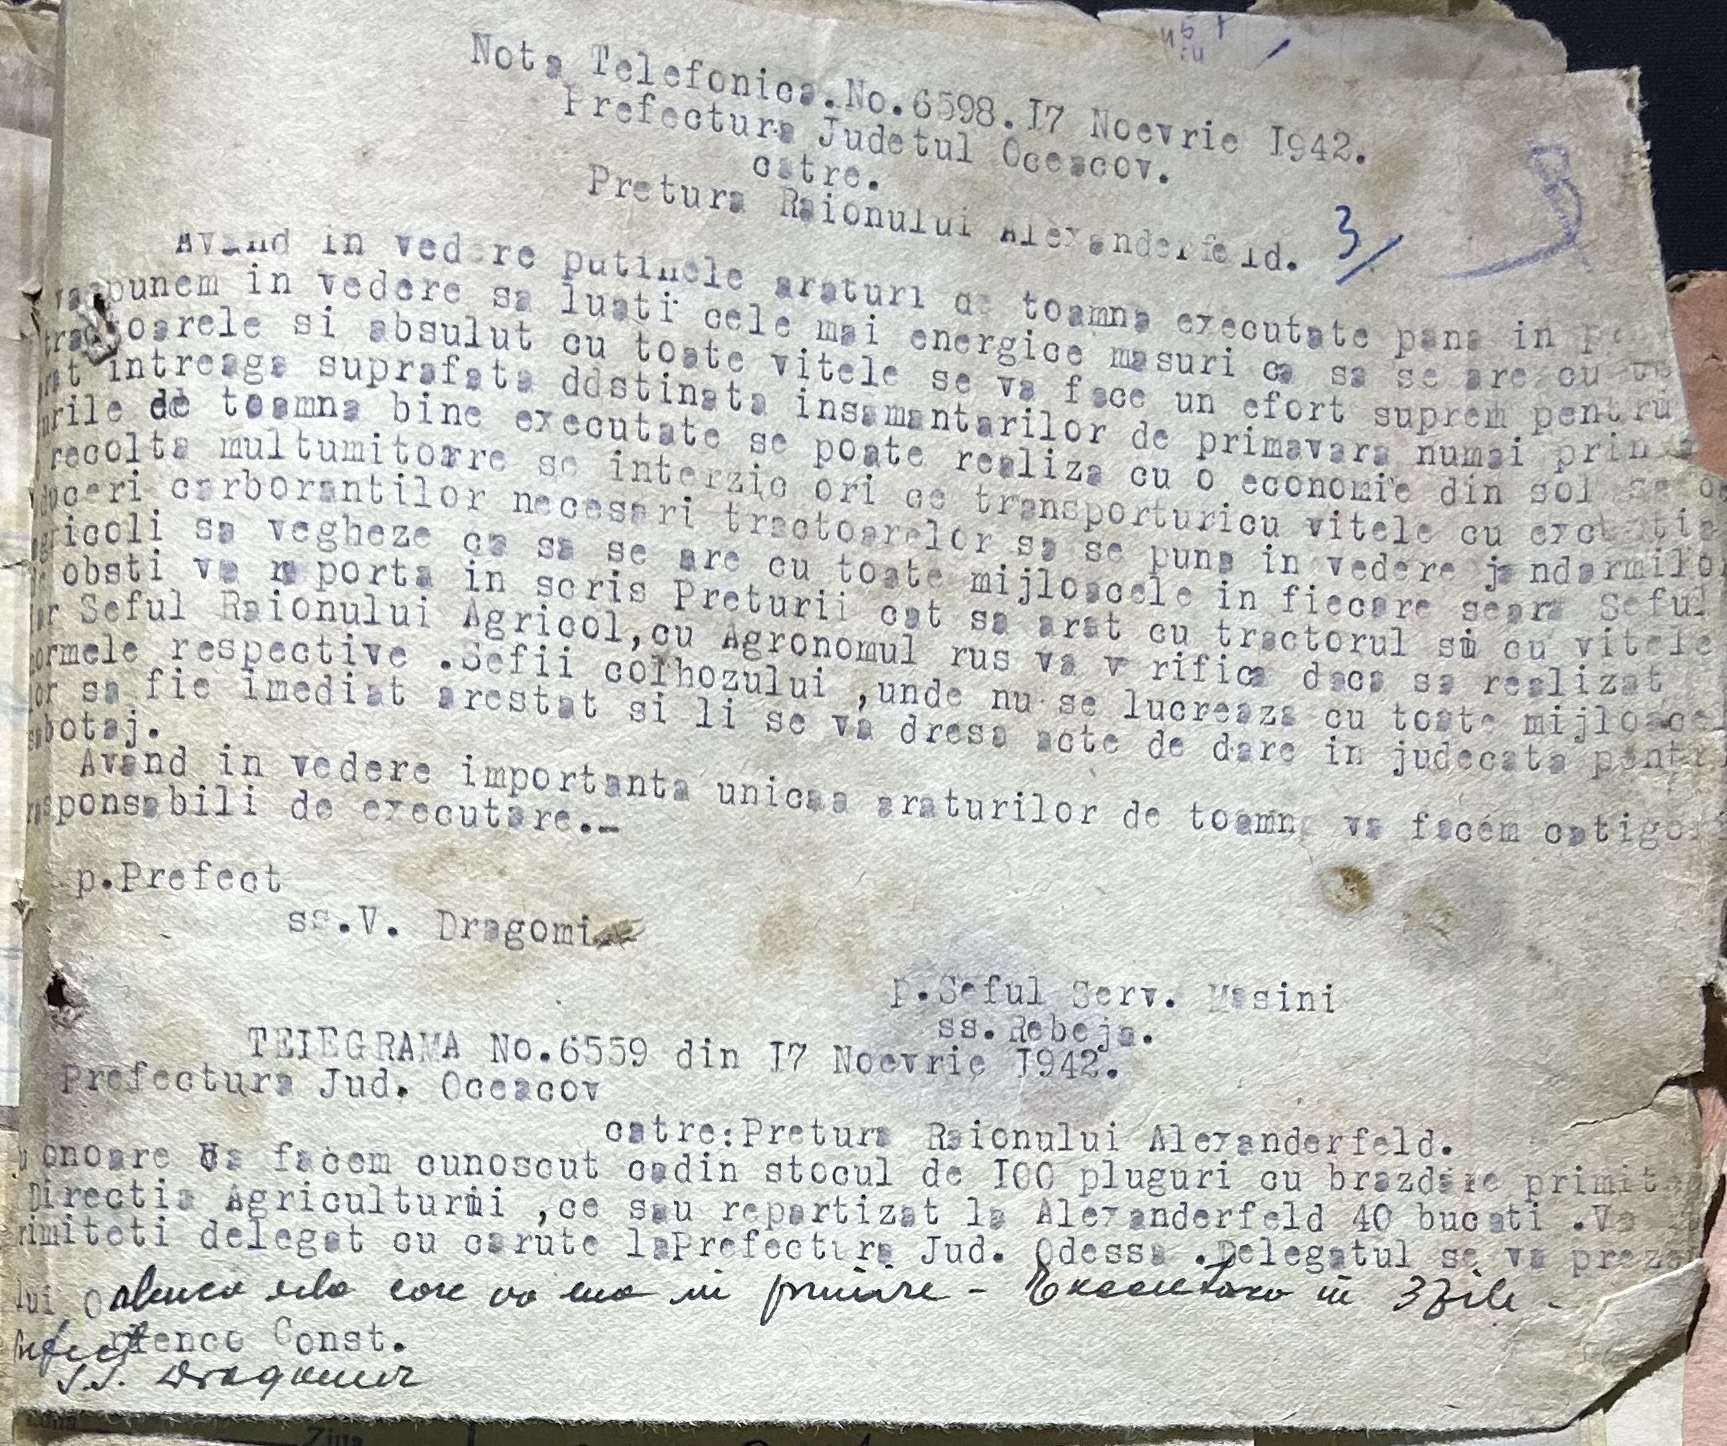 Nota Telefonica.No.6598.I7 Noevrie I942.
Prefectura Judetul Oceacov.
catre.
Pretura Raionului Alexanderfeld.
3/
Avand in vedere putinele araturi de toamna executate pana in
va punem in vedere sa luati cele mai energice masuri ca sa se are cu
tractoarele si absulut cu toate vitele se va face un efort suprem pentru
arat intreaga suprafata ddstinata insamantarilor de primavara numai prin
urile de toamna bine executate se poate realiza cu o economie din sol
recolta multumitoarre se interzic ori ce transporturicu vitele cu
duceri carborantilor necesari tractoarelor sa se puna in vedere jandarmilor
agricoli sa vegheze ca sa se are cu toate mijloacele in fiecare seara Seful
de obsti va raporta in scris Preturii cat sa arat cu tractorul si cu vitele
iar Seful Raionului Agricol,cu Agronomul rus va verifica daca sa realizat
normele respective .Sefii colhozului ,unde nu se lucreaza cu toate mijloacel
lor sa fie imediat arestat si li se va dresa acte de dare in judecata pentru
sabotaj.
Avand in vedere importanta unicaa araturilor de toamna va facem
responsabili de executare.-
p.Prefect
ss.V. Dragomir
p.Seful Serv. Masini
ss.Rebeja.
TELEGRAMA No.6559 din I7 Noevrie I942.
Prefectura Jud. Oceacov
catre:Pretura Raionului Alexanderfeld.
onoare Va facem cunoscut cadin stocul de I00 pluguri cu brazdare
Directia Agriculturii ,ce sau repartizat la Alexanderfeld 40 bucati .Va
rimiteti delegat cu carute laPrefectura Jud. Odessa .Delegatul se va
lui care va da in primire - Executarea in 3 zile -
Const.
Prefect
s.s. Dragomir